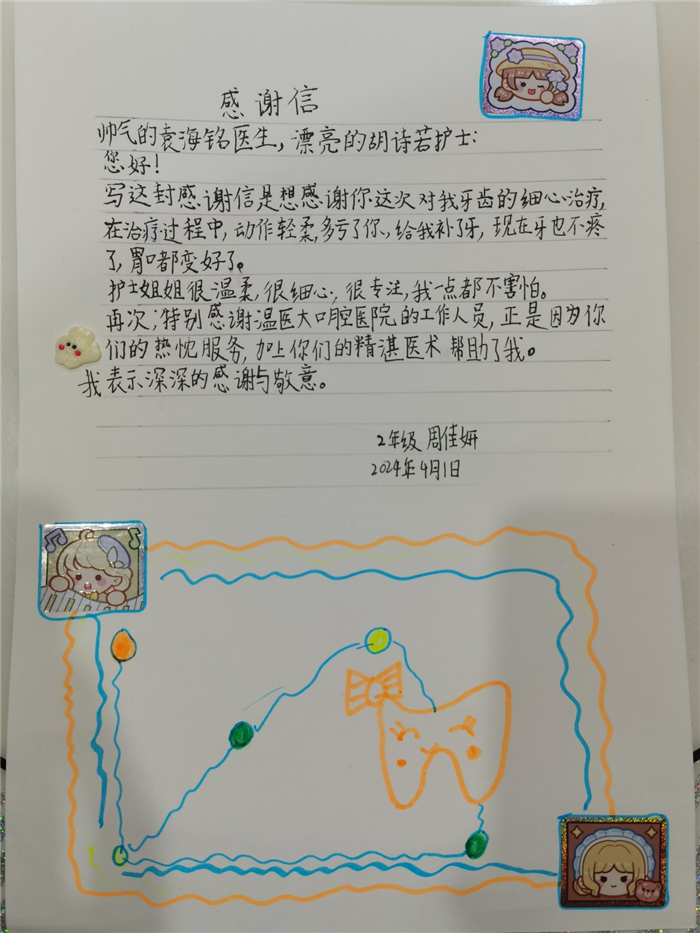 感谢信
帅气的袁海铭医生,漂亮的胡诗若护士:
您好!
写这封感谢信是想感谢你这次对我牙齿的细心治疗,
在治疗过程中,动作轻柔,多亏了你、给我补了牙,现在牙也不疼
了,胃口都变好了。
护士姐姐很温柔,很细心,很专注,我一点都不害怕。
再次:特别感谢温医大口腔医院的工作人员,正是因为你
们的热忱服务,加上你们的精湛医术 帮助了我。
我表示深深的感谢与敬意。
2年级 周佳妍
2024年4月1日